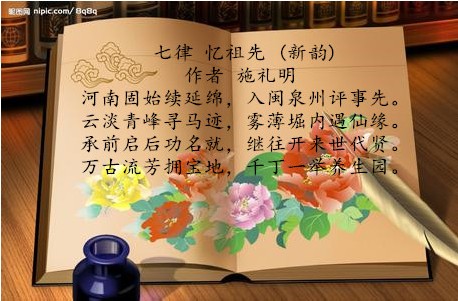 昵图网 nipic.com/8q8q
七律 忆祖先 (新韵)
作者 施礼明
河南固始续延绵，入闽泉州评事先。
云淡青峰寻马迹，雾薄堀内遇仙缘。
承前启后功名就，继往开来世代贤。
万古流芳拥宝地，千丁一举养生园。